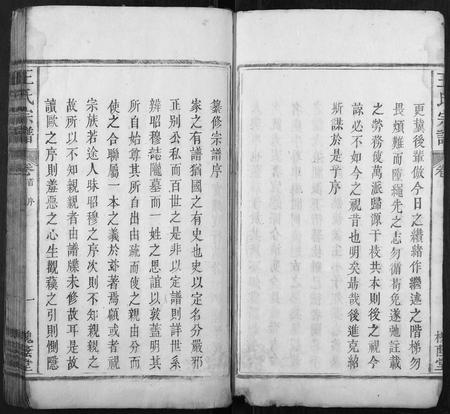 王氏宗譜
卷
更冀後輩倣今日之續緒作繼述之階梯勿
畏煩難而墮繩先之志勿循苟免遂虺註載
之勞務俊萬派歸源千枝共本則後之視今
諒必不如今之視昔也明矣勗哉後進克紹
斯謀於是乎序
纂修宗譜序
家之有譜猶國之有史也史以定名分嚴邪
正别公私而百世之是非以定譜則詳世系
辨昭穆誌隴墓而一姓之恩誼以敦蓋明其
所自始尊其所自出由疏而使之親由分而
使之合聯屬一本之義於茲著焉顧或者視
宗族若途人昧昭穆之序次則不知親親之
故所以不知親親者由譜牒未修故耳是故
讀歐之序則羞惡之心生觀蘓之引則惻隱
王氏宗譜
卷首
序
一
槐蔭堂